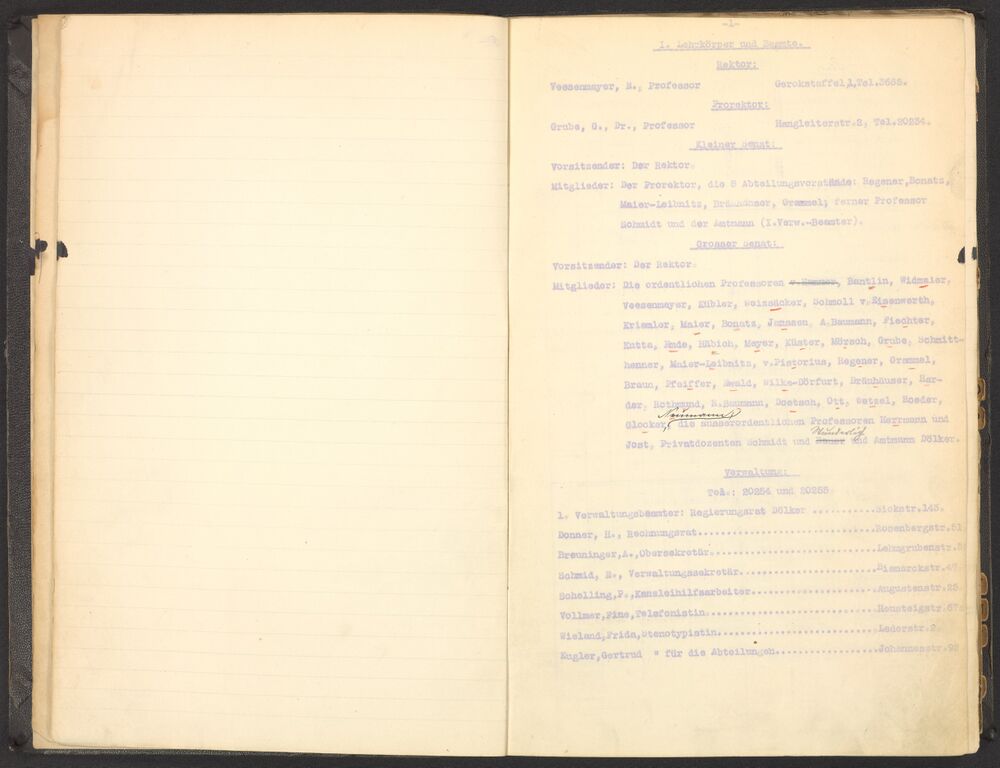 -1-
I. Lehrkörper und Beamte.
Rektor:
Veesenmayer, E., Professor Gerokstaffel 1, Tel.3685.
Prorektor:
Grube, G., Dr., Professor Hangleiterstr.2, Tel.20234.
Kleiner Senat:
Vorsitzender: Der Rektor.
Mitglieder: Der Prorektor, die 6 Abteilungsvorstände: Regener, Bonatz,
Maier-Leibnitz, Bräuhäuser, Grammel, ferner Professor
Schmidt und der Amtmann (I.Verw.-Beamter).
Grosser Senat:
Vorsitzender: Der Rektor.
Mitglieder: Die ordentlichen Professoren v.Hammer, Bantlin, Widmaier,
Veesenmayer, Kübler, Weizsäcker, Schmoll v.Eisenwerth,
Kriemler, Maier, Bonatz, Janssen, A.Baumann, Fiechter,
Kutta, Ende, Häbich, Meyer, Küster, Mörsch, Grube, Schmitt-
henner, Maier-Leibnitz, v.Pistorius, Regener, Grammel,
Braun, Pfeiffer, Ewald, Wilke-Dörfurt, Bräuhäuser, Har-
der, Rothmund, R.Baumann, Doetsch, Ott, Wetzel, Roeder,
Neumann
Glocker, die ausserordentlichen Professoren Herrmann und
Wunderlich
Jost, Privatdozenten Schmidt und Sauer und Amtmann Dölker.
Verwaltung:
Tel.: 20254 und 20255.
1. Verwaltungsbeamter: Regierungsrat Dölker ..........Bickstr.143.
Donner, H., Rechnungsrat............................Rosenbergstr.51
Breuninger,A.,Obersekretär..........................Lehmgrubenstr.
Schmid, E., Verwaltungssekretär.....................Bismarckstr.47
Schelling,P.,Kanzleihilfsarbeiter...................Augustenstr.25
Vollmer,Fine,Telefonistin...........................Neusteigstr.67
Wieland,Frida,Stenotypistin.........................Lederstr.2.
Kugler,Gertrud " für die Abteilungen................Johannesstr.92